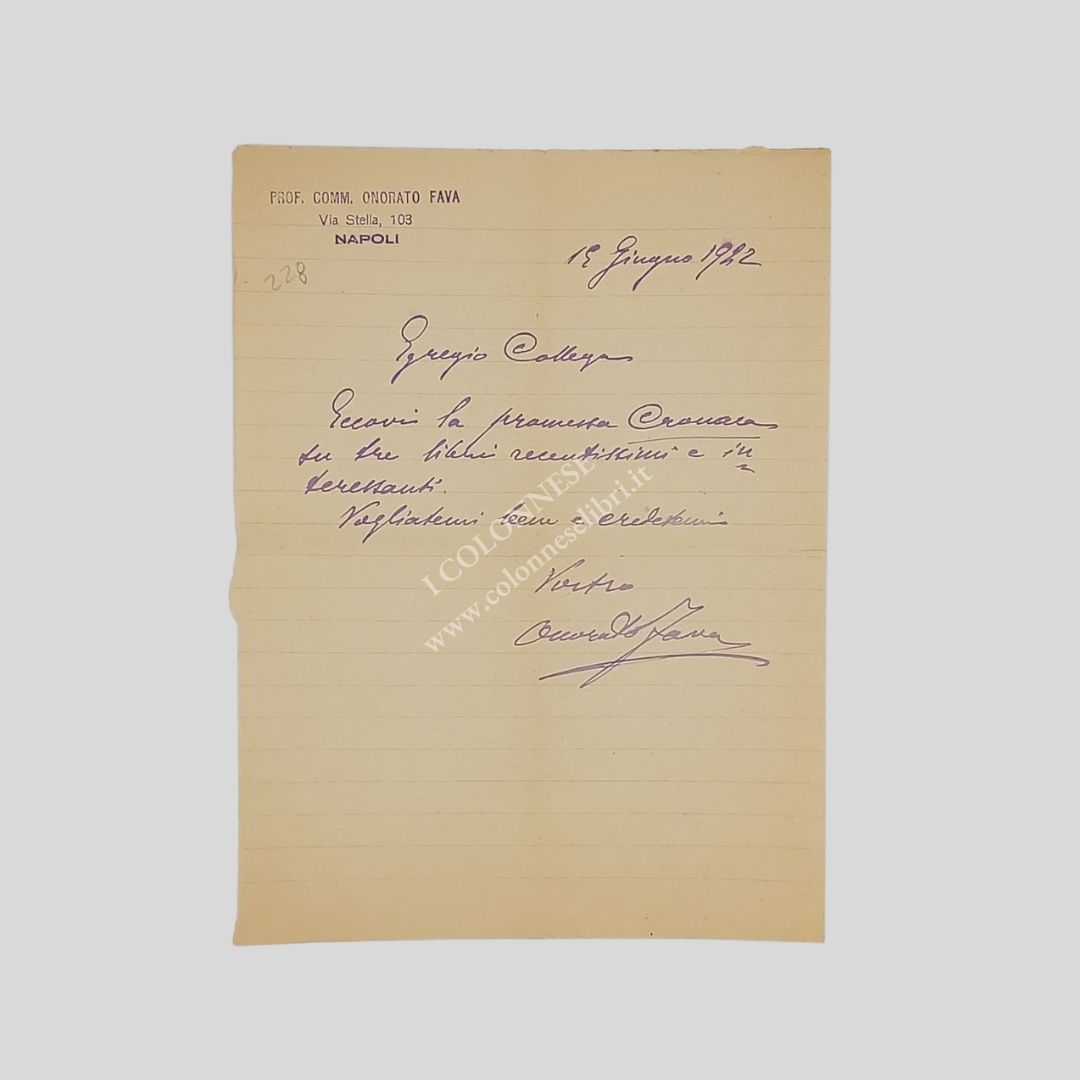 PROF. COMM. ONORATO FAVA
Via Stella, 103
NAPOLI
228
Giugno 1922
Egregio Collega
Eccovi la promessa Cronaca
su tre libri recentissimi e in
teressanti.
Vogliatemi bene e credetemi
Vostro
Onorato Fava
I COLONNESE
www.colonneselibri.it